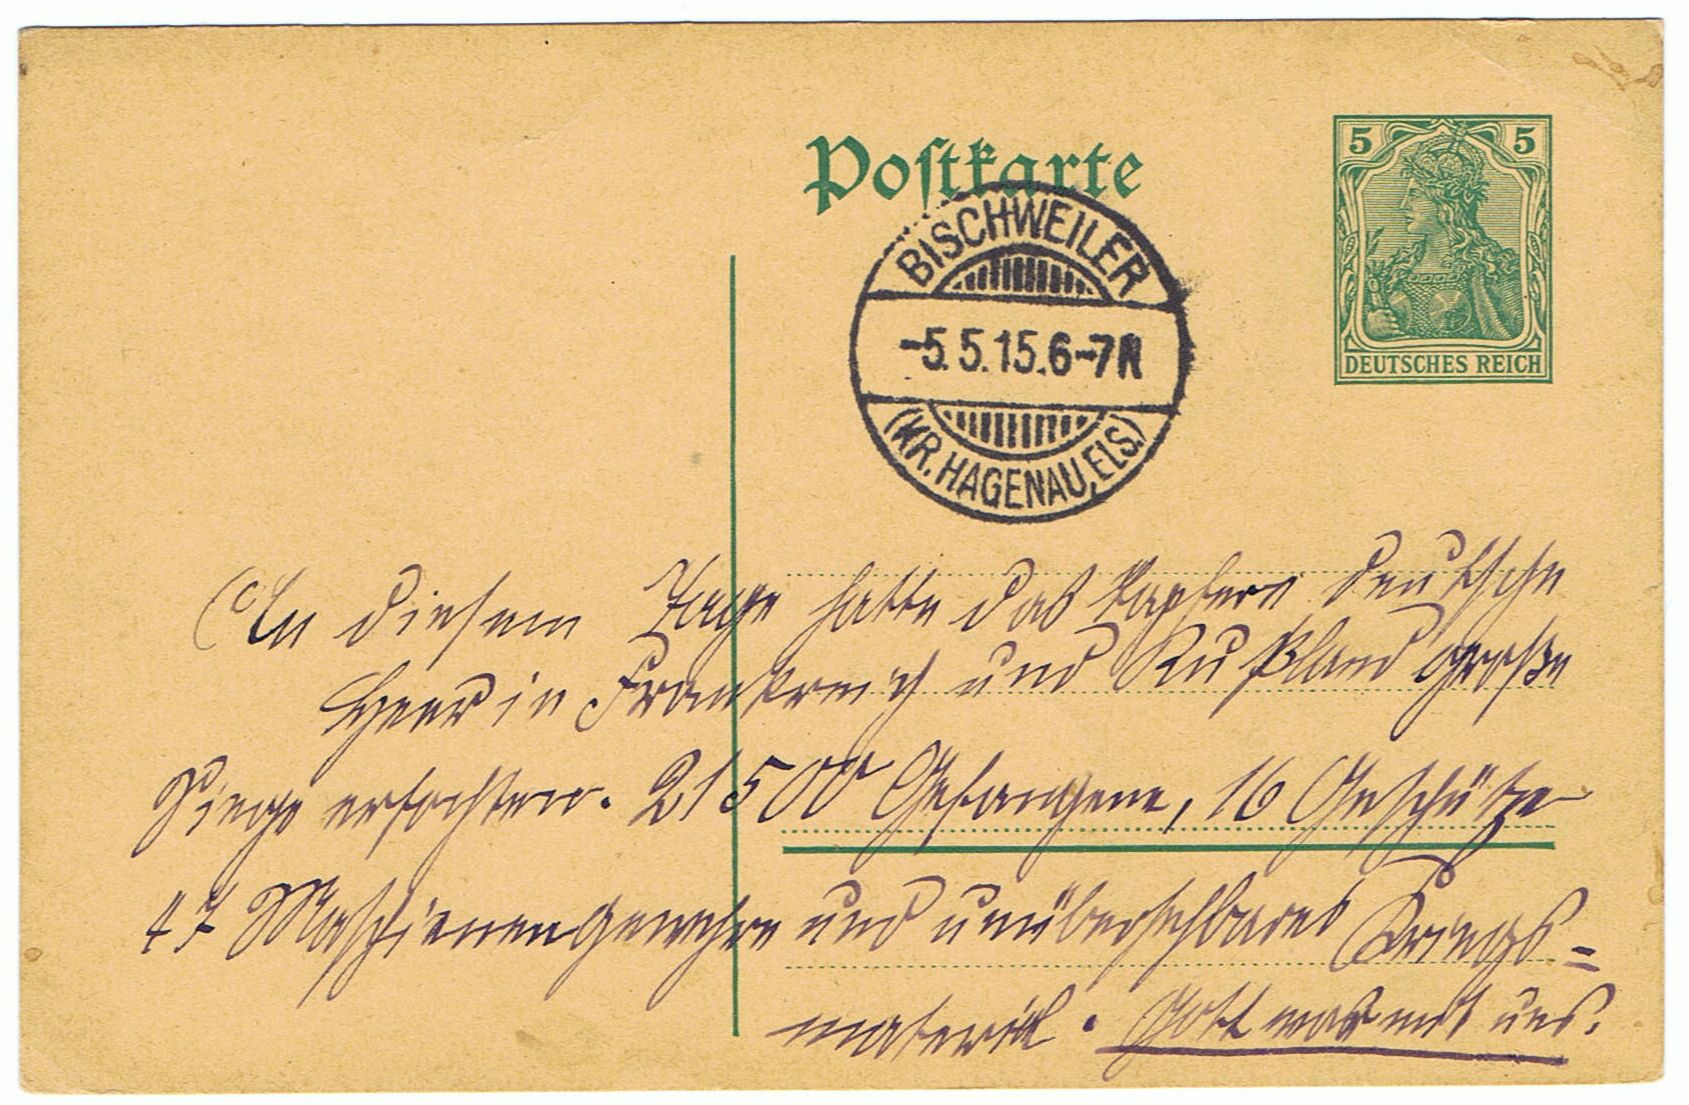 Postkarte
5 5
DEUTSCHES REICH
BISCHWEILER
-5.5.15.6-7N
(KR. HAGENAU, ELS.)
An diesem Tage hatte das tapfere deutsche
Heer in Frankreich und Rußland große
Siege erfochten. 21500 Gefangene, 16 Geschütze
47 Maschienengewehre und unübersehbares Kriegs=
material. Gott war mit uns.